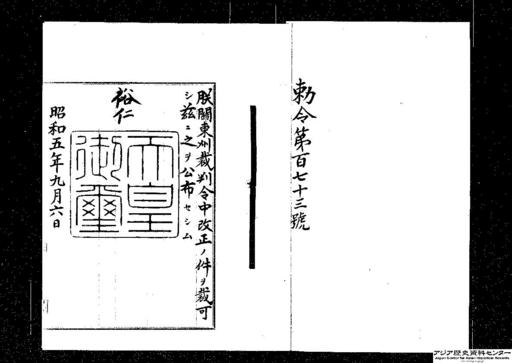 勅令第百七十三號
朕關東州裁判令中改正ノ件ヲ裁可
シ茲ニ之ヲ公布セシム
裕仁
天皇御璽
昭和五年九月六日
アジア歴史資料センター
Japan Center for Asian Historical Records